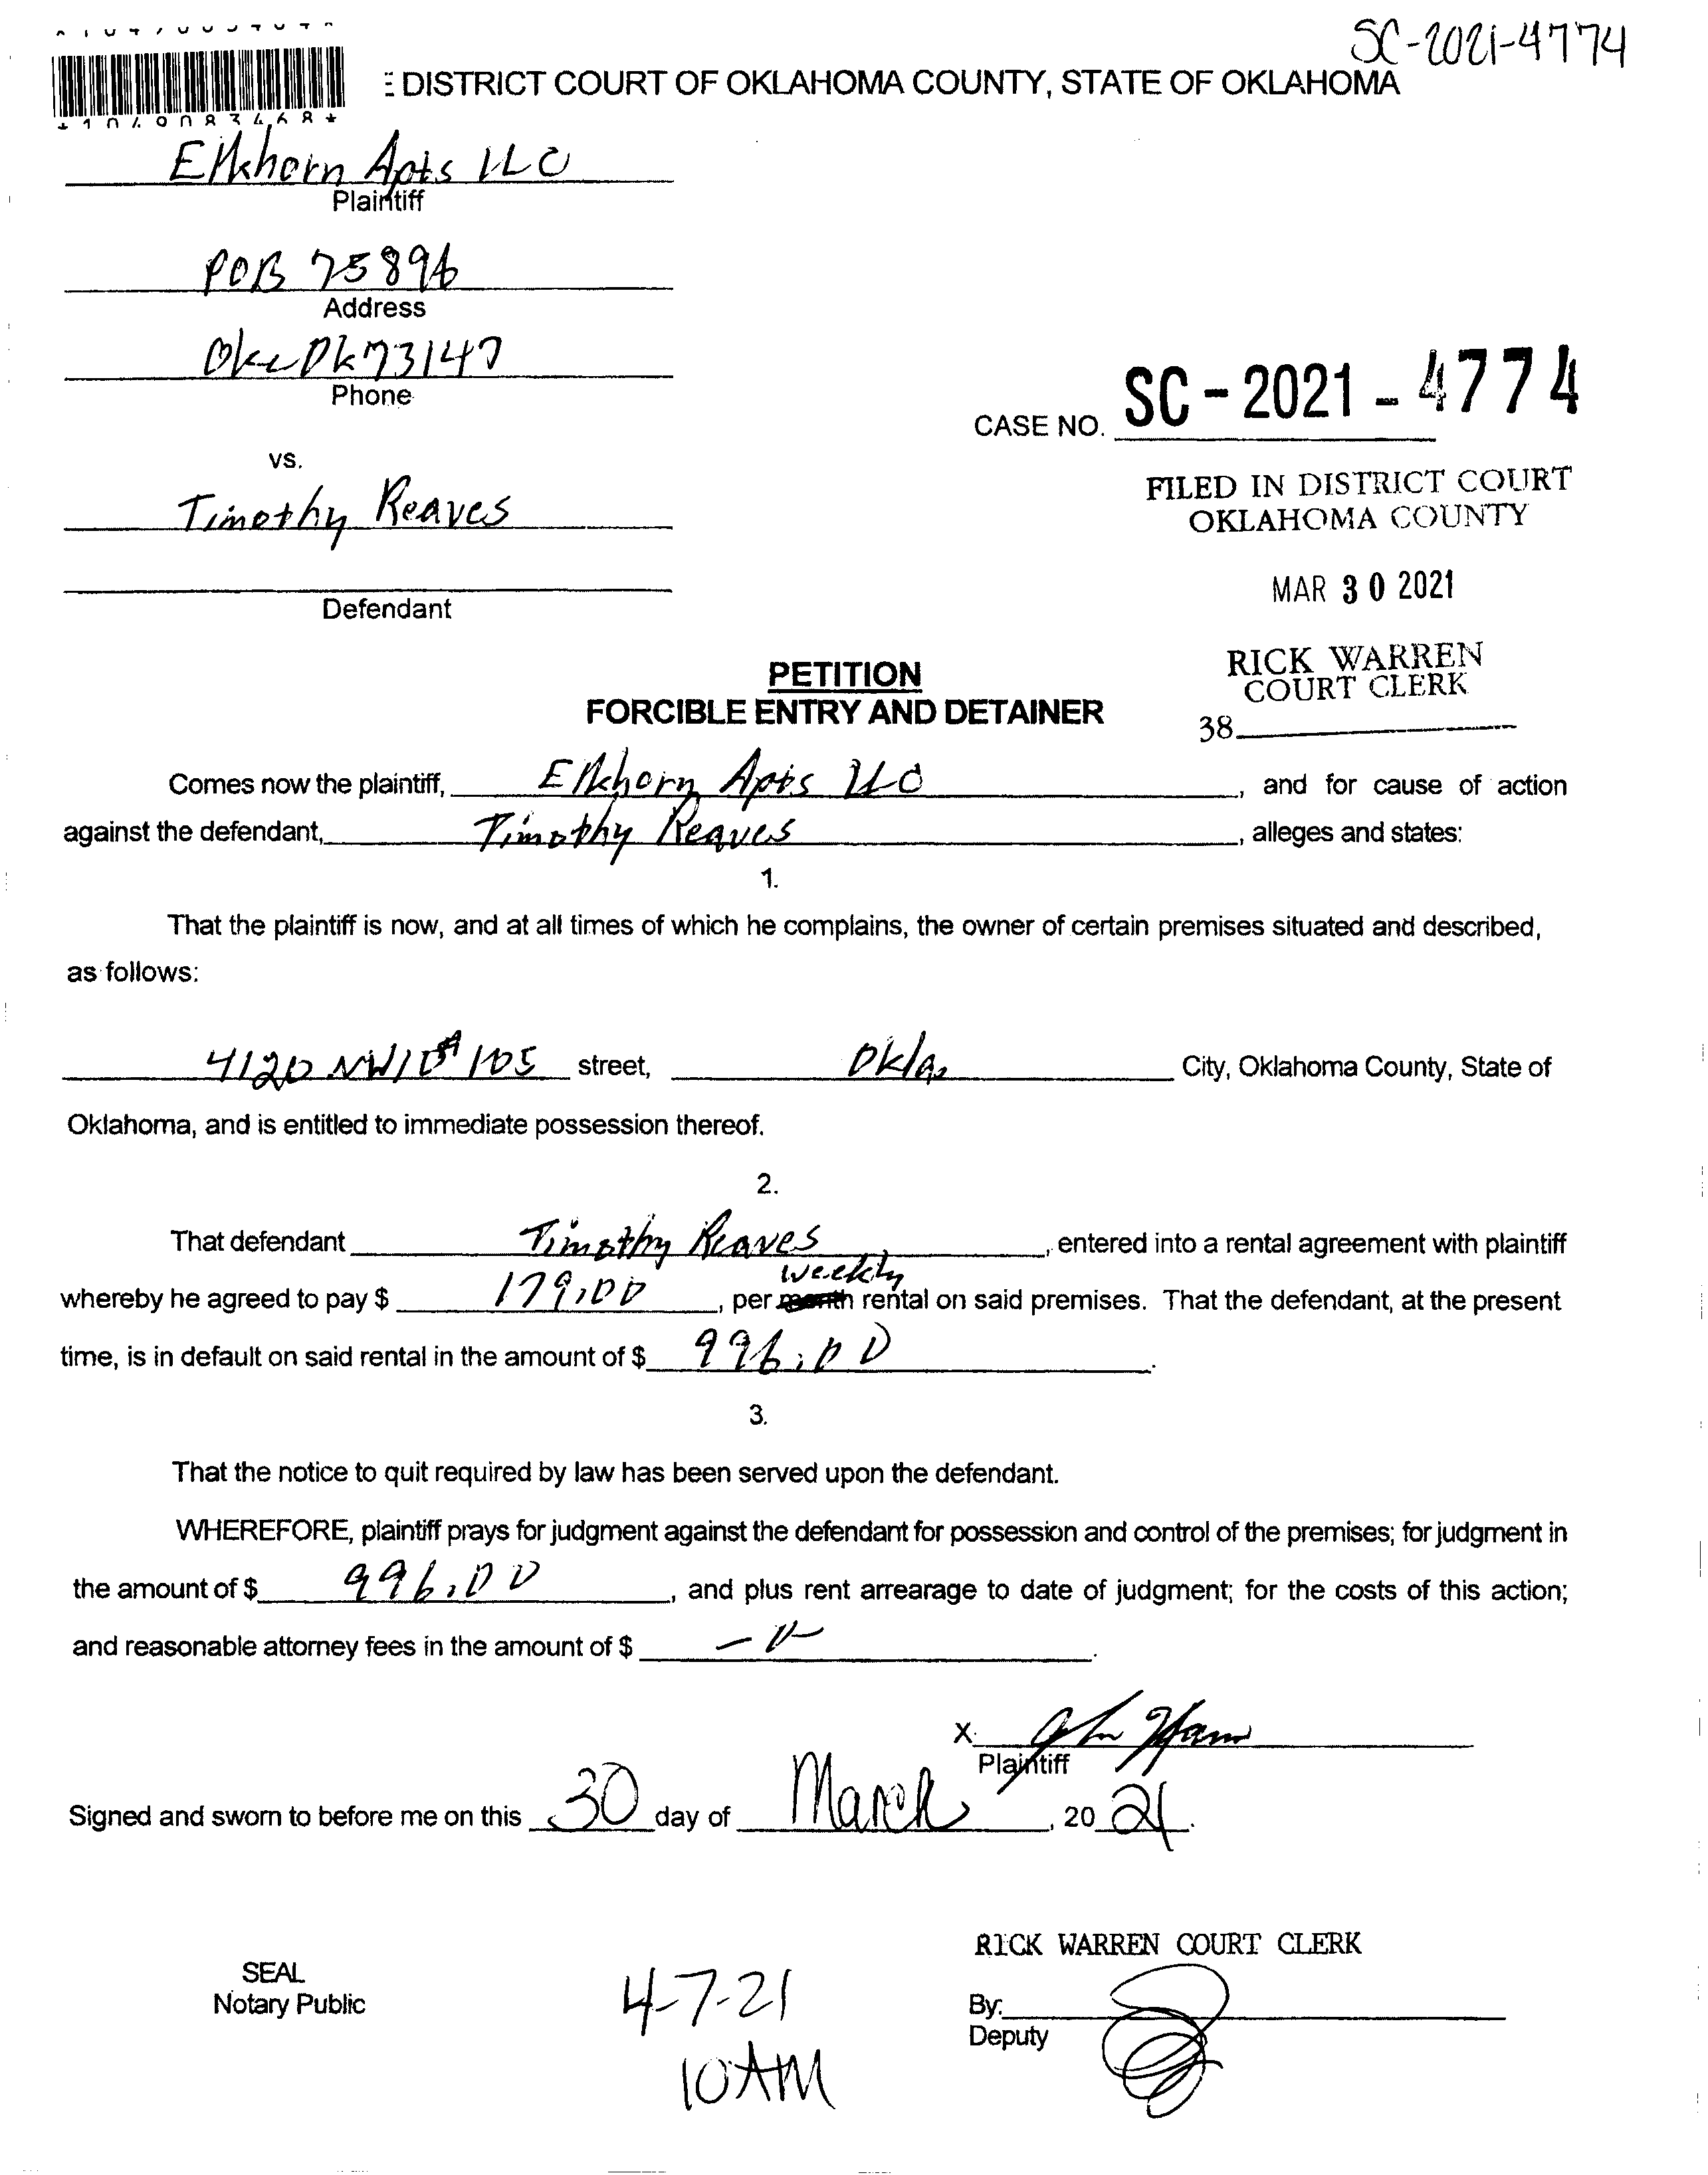 SC-2021-4774
DISTRICT COURT OF OKLAHOMA COUNTY, STATE OF OKLAHOMA
*1049083468*
Elkhorn Apts LLC
Plaintiff
POB 75896
Address
Okc Ok 73147
Phone
CASE NO. SC-2021-4774
vs.
FILED IN DISTRICT COURT
OKLAHOMA COUNTY
Timothy Reaves
MAR 30 2021
Defendant
RICK WARREN
COURT CLERK
38
PETITION
FORCIBLE ENTRY AND DETAINER
Comes now the plaintiff, Elkhorn Apts LLC, and for cause of action
against the defendant, Timothy Reaves, alleges and states:
1.
That the plaintiff is now, and at all times of which he complains, the owner of certain premises situated and described,
as follows:
4120 NW10 # 105 street, Okla. City, Oklahoma County, State of
Oklahoma, and is entitled to immediate possession thereof.
2.
That defendant Timothy Reaves, entered into a rental agreement with plaintiff
weekly
whereby he agreed to pay $ 179.00, per month rental on said premises. That the defendant, at the present
time, is in default on said rental in the amount of $ 996.00.
3.
That the notice to quit required by law has been served upon the defendant.
WHEREFORE, plaintiff prays for judgment against the defendant for possession and control of the premises; for judgment in
the amount of $ 996.00, and plus rent arrearage to date of judgment; for the costs of this action;
and reasonable attorney fees in the amount of $ -0-.
X
Plaintiff
Signed and sworn to before me on this 30 day of March, 2021.
RICK WARREN COURT CLERK
SEAL
Notary Public
4-7-21
10AM
By:
Deputy